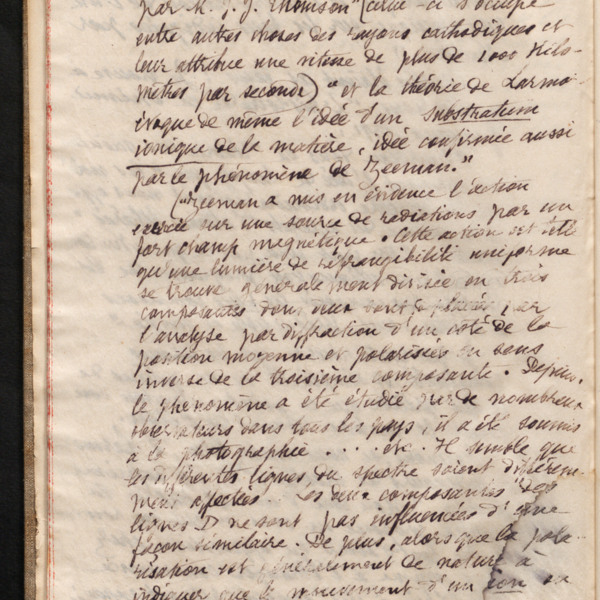 par M. J. J. Thomson" (celui-ci s'occupe
entre autres choses des rayons cathodiques et
leur attribue une vitesse de plus de 1000 Kilo-
mètres par seconde) "et la théorie de Larmor
évoque de même l'idée d'un substratum
ionique de la matière, idée confirmée aussi
par le phénomène de Zeeman."
("Zeeman a mis en évidence l'action
exercée sur une source de radiations par un
fort champ magnétique. Cette action est telle
qu'une lumière de réfrangibilité uniforme
se trouve généralement divisée en trois
composantes dont deux sont déplacées par
l'analyse par diffraction d'un côté de la
position moyenne et polarisées en sens
inverse de la troisième composante. Depuis,
le phénomène a été étudié par de nombreux
observateurs dans tous les pays, il a été soumis
à la photographie .... etc. Il semble que
les différentes lignes du spectre soient différem-
ment affectées. Les deux composantes des
lignes D ne sont pas influencées d'une
façon similaire. De plus, alors que la pola-
risation est généralement de nature à
indiquer que le mouvement d'un ion